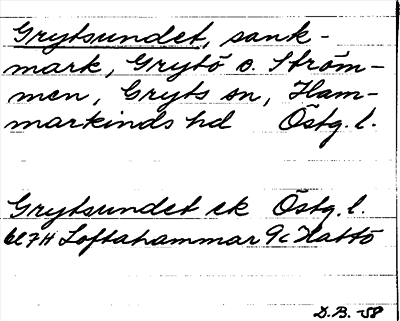 Grytsundet, sank-
mark, Grytö o. Ström-
men, Gryts sn, Ham-
markinds hd Östg. l.
Grytsundet ek Östg. l.
Loftahammar 9c Hattö
D.B. -58